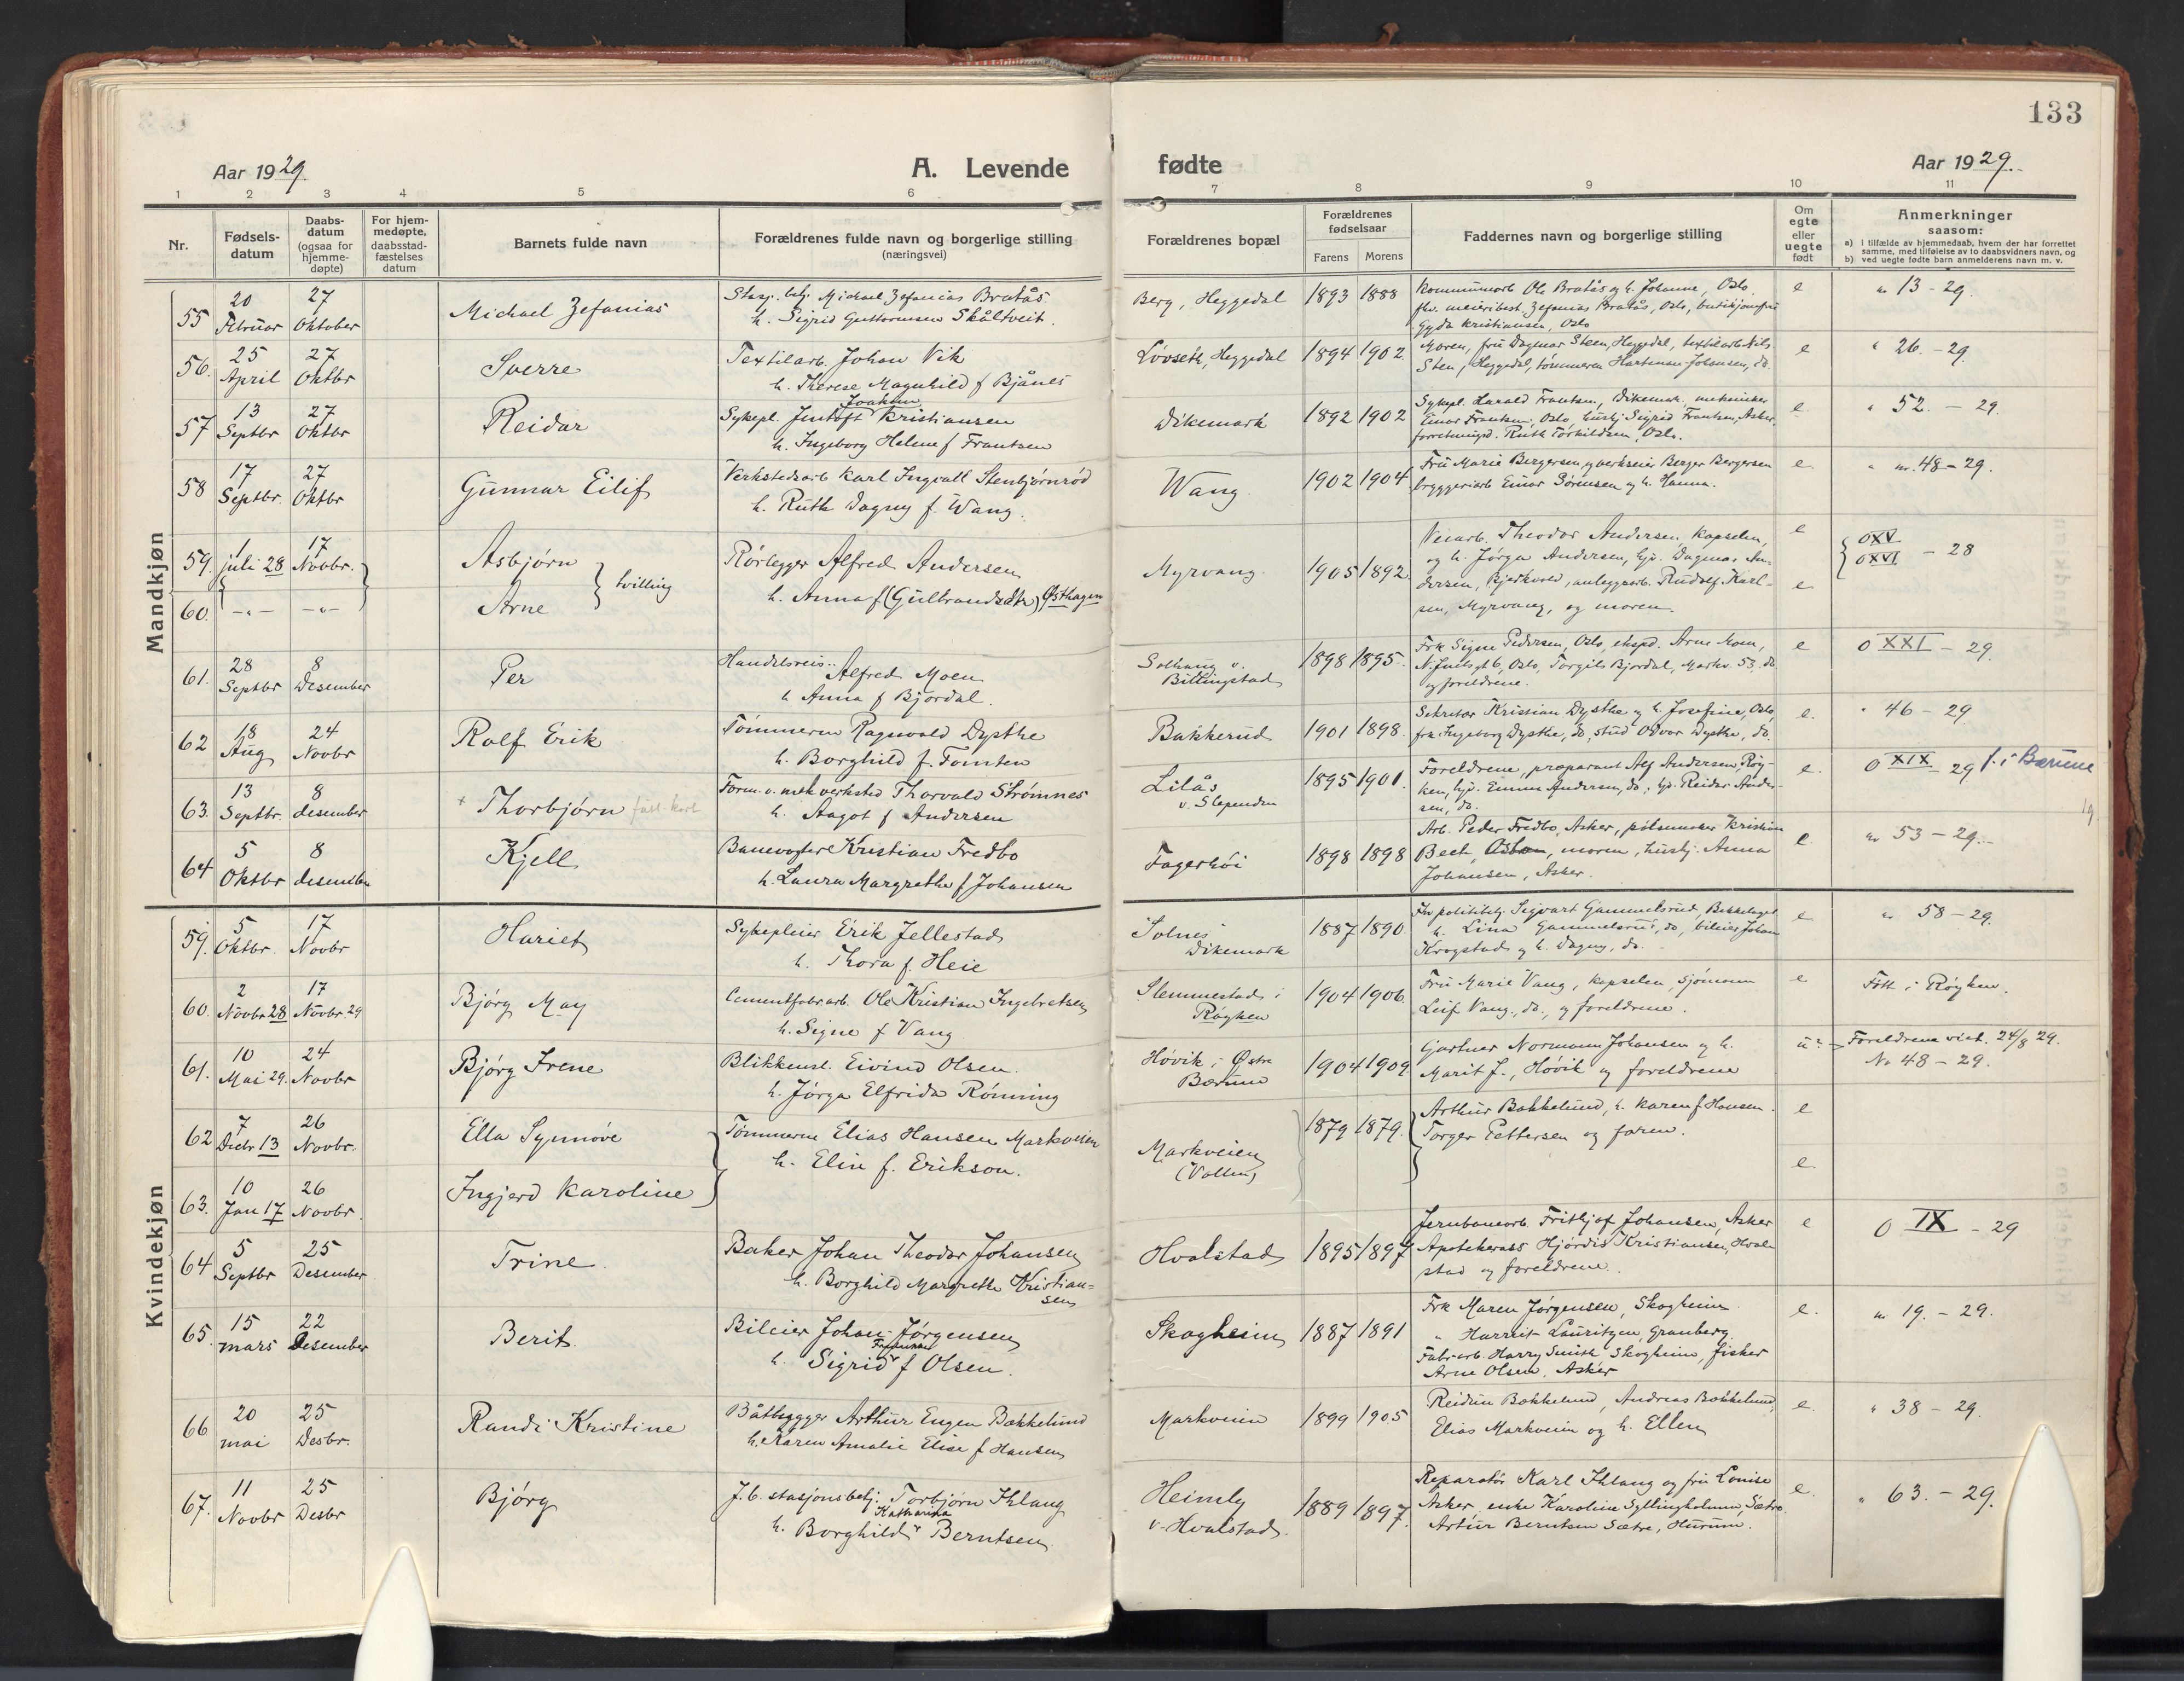 133
Aar 1929.
A. Levende fødte
Aar 1929.
1 2 3 4 5 6 7 8 9 10 11
Nr.
Fødsels-
datum
Daabs-
datum
(ogsaa for
hjemme-
døpte)
For hjem-
medøpte,
daabsstad-
fæstelses
datum
Barnets fulde navn
Forældrenes fulde navn og borgerlige stilling
(næringsvei)
Forældrenes bopæl
Forældrenes
fødselsaar
Farens Morens
Faddernes navn og borgerlige stilling
Om
egte
eller
uegte
født
Anmerkninger
saasom:
a) i tilfælde av hjemmedaab, hvem der har forrettet
samme, med tilføielse av to daabsvidners navn, og
b) ved uegte fødte barn anmelderens navn m. v.
Mandkjøn
55 20 Februar 27 Oktober Michael Zefanias
Stasj. betj. Michael Zefanias Bratås
h. Sigrid Guttormsen Skåltveit.
Berg, Heggedal 1893 1888
Kommunearb Ole Bratås og h. Johanne, Oslo,
fhv. meieribest. Zefanias Bratås, Oslo, butikjomfru
Gyda Kristiansen, Oslo
e 13 - 29.
56. 25 April 27 Oktbr Sverre
Textilarb. Johan Vik
h. Therese Magnhild f Bjånes
Løvseth, Heggedal 1894 1902.
Moren, fru Dagmar Steen, Heggedal, textilarb Nils
Sten, Heggedal, tømmerm Hartman Johansen, do.
e " 26. - 29.
57 13 Septbr 27 Oktbr Reidar
Joakim
Sykepl. Jentoft Kristiansen
h. Ingeborg Helene f Frantsen
Dikemark 1892 1902
Sykepl. Harald Frantsen, Dikemark, mekaniker
Einar Frantsen, Oslo, husbj Sigrid Frantsen, Asker,
forretningsd. Ruth Torkildsen, Oslo.
e " 52. - 29.
58 17 Septbr. 27 Oktbr Gunnar Eilif
Verkstedsarb Karl Ingvalt Stenbjørnrød
h. Ruth Dagny f. Wang.
Wang. 1902 1904
Fru Marie Bergersen, verkseier Berger Bergersen
bryggeriarb Einar Sørensen og h. Hanna.
e. " nr. 48 - 29.
59. 1 juli 28 17 Novbr. Asbjørn
60. -"- -"- Arne
tvilling
Rørlegger Alfred Andersen
h. Anna f (Gulbrandsdtr) Østhagen
Myrvang. 1905 1892.
Veiarb. Theodor Andersen, Kapselen,
og h. Jørga Andersen, hj. Dagmar An-
dersen, Bjerkvold, anleggsarb. Rudolf Karl-
sen, Myrvang, og moren.
e
e
OXV
OXVI - 28
61. 28 Septbr 8 Desember Per
Handelsreis. Alfred Moen
h Anna f Bjordal.
Solhaug v.
Billingstad 1898 1895.
Frk Signe Pedersen, Oslo, eksped. Arne Moen,
Oslo, Torgils Bjordal, Markv. 53. do
og foreldrene.
e O XXI - 29.
62 18 Aug 24 Novbr Rolf Erik
Tømmerm Ragnvald Dysthe
h. Borghild f. Tomten
Bakkerud 1901 1898.
Sekretær Kristian Dysthe og h. Josefine, Oslo,
frk Ingeborg Dysthe, do, stud Odvar Dysthe, do.
e. " 46 - 29
63. 13 Septbr. 8 desember + Thorbjørn
Form. v. mek verksted Thorvald Strømnes
h. Aagot f Andersen
Lilås
v. Slependen 1895 1901.
Foreldrene, preparant Alf Andersen Røy-
ken, hj. Emma Andersen, do, hj. Reidar Ander-
sen, do.
e. O XIX - 29 f. i Bærum
19
64 5 Oktbr 8 desember Kjell
Banevogter Kristian Fredbo
h. Laura Margrethe f Johansen
Fagerhöi 1898 1898
Arb. Peder Fredbo, Asker, pølsemaker Kristian
Bech, moren, husbj. Anna
Johansen, Asker.
e. nr 53 - 29.
Kvindekjøn
59. 5 Oktbr. 17 Novbr Hariet
Sykepleier Erik Jellestad
h. Thora f. Heie
Solnes
Dikemark 1887 1890
Fhv politibtj. Sigvart Gammelsrud, Bekkelaget
h. Lina Gammelsrud, do, bileier Johan
Krogstad og h. Dagny, do.
e nr 58 - 29.
60. 2 Novbr 28 17 Novbr 29 Bjørg May
Cementfabrarb. Ole Kristian Ingebretsen
h. Signe f Vang
Slemmestad i
Røyken 1904 1906
Fru Marie Vang, Kapselen, sjømann
Leif Vang, do., og foreldrene.
e Født i Røyken.
61. 10 Mai 29. 24 Novbr Bjørg Irene
Blikkensl. Eivind Olsen.
h. Jørga Elfrida Rønning
Høvik i Østre
Bærum 1904 1909
Gartner Normann Johansen og h.
Marit J., Høvik og foreldrene
Foreldrene viet. 24/8 29.
No 48 - 29.
62 7 Decbr 13 26 Novbr. Ella Synnøve
63. 10 Jan 17 26 Novbr. Ingjerd Karoline
Tømmerm Elias Hansen Markveien
h. Elin f. Erikson.
Markveien
(Vollen) 1879 1879.
Arthur Bakkelund, h. Karen f Hansen.
Torger Pettersen og faren.
e
e.
64 5 Septbr 25 Desember Trine.
Baker Johan Theodor Johansen
h. Borghild Margrethe Kristian-
sen
Hvalstad 1895 1897
Jernbanearb. Frithjof Johansen, Asker
Apotekerass Hjørdis Kristiansen, Hval-
stad og foreldrene.
e O IX - 29
65. 15 mars 22 Desember Berit.
Bileier Johan Jørgensen
h. Sigrid f Olsen.
Skogheim 1887 1891
Frk Maren Jørgensen, Skogheim.
" Harriet Lauritzen, Granberg.
Fabr.arb. Harry Smith Skogheim, fisker
Arne Olsen, Asker
e. nr 19. - 29.
66 20 mai 25 Desbr. Randi Kristine
Båtbygger Arthur Eugen Bakkelund
h. Karen Amalie Elise f Hansen
Markveien 1899 1905
Reidun Bakkelund, Andreas Bakkelund,
Elias Markveien og h. Ellen
e. " 38 - 29.
67. 11 Novbr 25 Desbr Bjørg
J.b. stasjonsbetj. Torbjørn Ihlang
Katharina
h. Borghild Berntsen
Heimly
v. Hvalstad. 1889 1897.
Reparatør Karl Ihlang og fru Louise
Asker, enke Karoline Syllingholmm, Sætre.
Artur Berntsen Sætre, Hurum.
e. " 63. - 29.